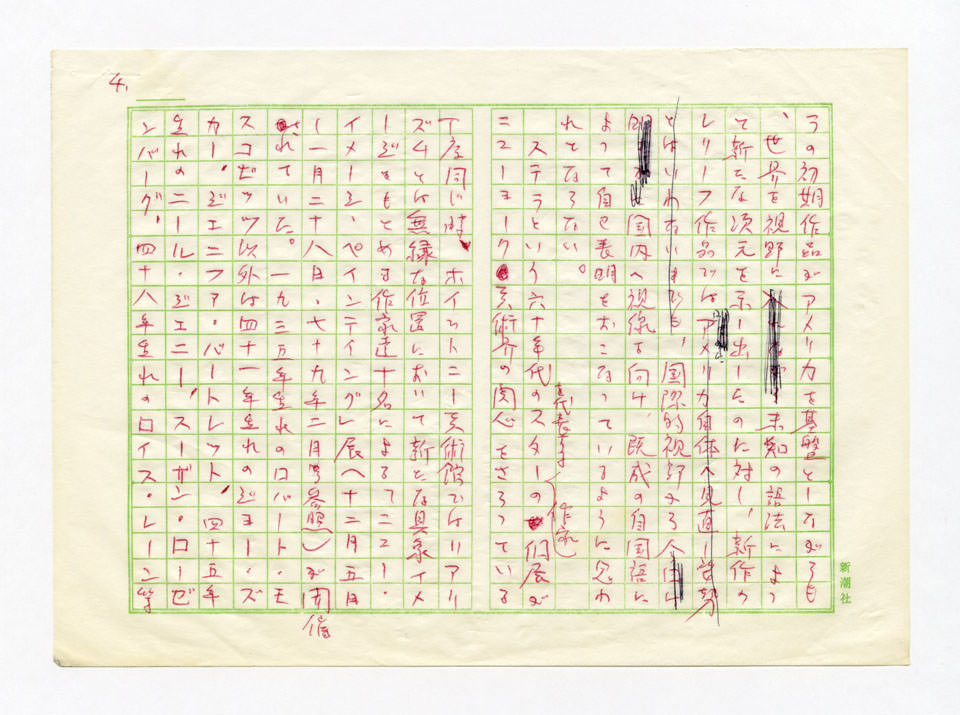 4.
ラの初期作品がアメリカを基盤としながらも
、世界を視野に 未知の語法によっ
て新たな次元を示し出したのに対し、新作の
レリーフ作品ではアメリカ自体へ見直し
とはいわないまでも、国際的視野から
国内へ視線を向け、既成の自国語に
よって自己表明をおこなっているように思わ
れてならない。
ステラという六十年代のスターの個展が
を代表する
作家
ニューヨーク美術界の関心をさらっている
丁度同じ時、ホイットニー美術館ではリアリ
ズムとは無縁な位置において新たな具象イメ
ージをもとめる作家達十名による〈ニュー・
イメージ・ペインティング〉展〈十二月五日
ー一月二十八日・七十九年二月号参照〉が開催
されていた。一九三五年生れのロバート・モ
スコビッツ以外は四十一年生れのジョー・ズ
カー、ジェニファ・バートレット、四十五年
生れのニール・ジェニー、スーザン・ローゼ
ンバーグ、四十八年生れのロイス・レーン等
新潮社